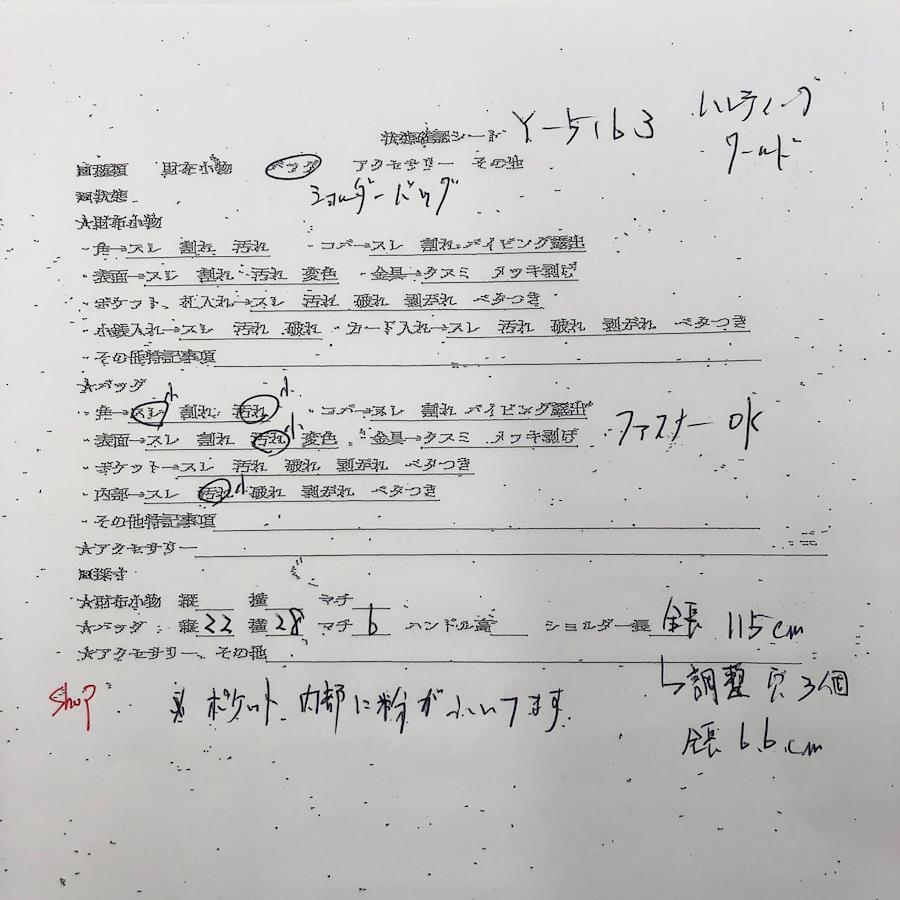 状態確認シート Y-5163 ハンティング
ワールド
■種類 財布小物 バッグ アクセサリー その他
■状態 ショルダーバッグ
★財布小物
・角→スレ 割れ 汚れ ・コバ→スレ 割れ パイピング露出
・表面→スレ 割れ 汚れ 変色 ・金具→クスミ メッキ剥げ
・ポケット、札入れ→スレ 汚れ 破れ 剥がれ ベタつき
・小銭入れ→スレ 汚れ 破れ ・カード入れ→スレ 汚れ 破れ 剥がれ ベタつき
・その他特記事項
★バッグ
・角→スレ小 割れ 汚れ小 ・コバ→スレ 割れ パイピング露出
・表面→スレ 割れ 汚れ小 変色 ・金具→クスミ メッキ剥げ ファスナー OK
・ポケット→スレ 汚れ 破れ 剥がれ ベタつき
・内部→スレ 汚れ小 破れ 剥がれ ベタつき
・その他特記事項
★アクセサリー
■採寸
★財布小物 縦 横 マチ
★バッグ 縦22 横28 マチ6 ハンドル高 ショルダー長 全長 115cm
★アクセサリー、その他
↳調整 穴 3個
Shop ※ポケット、内部に粉がふいてます。
全長 6.6.cm